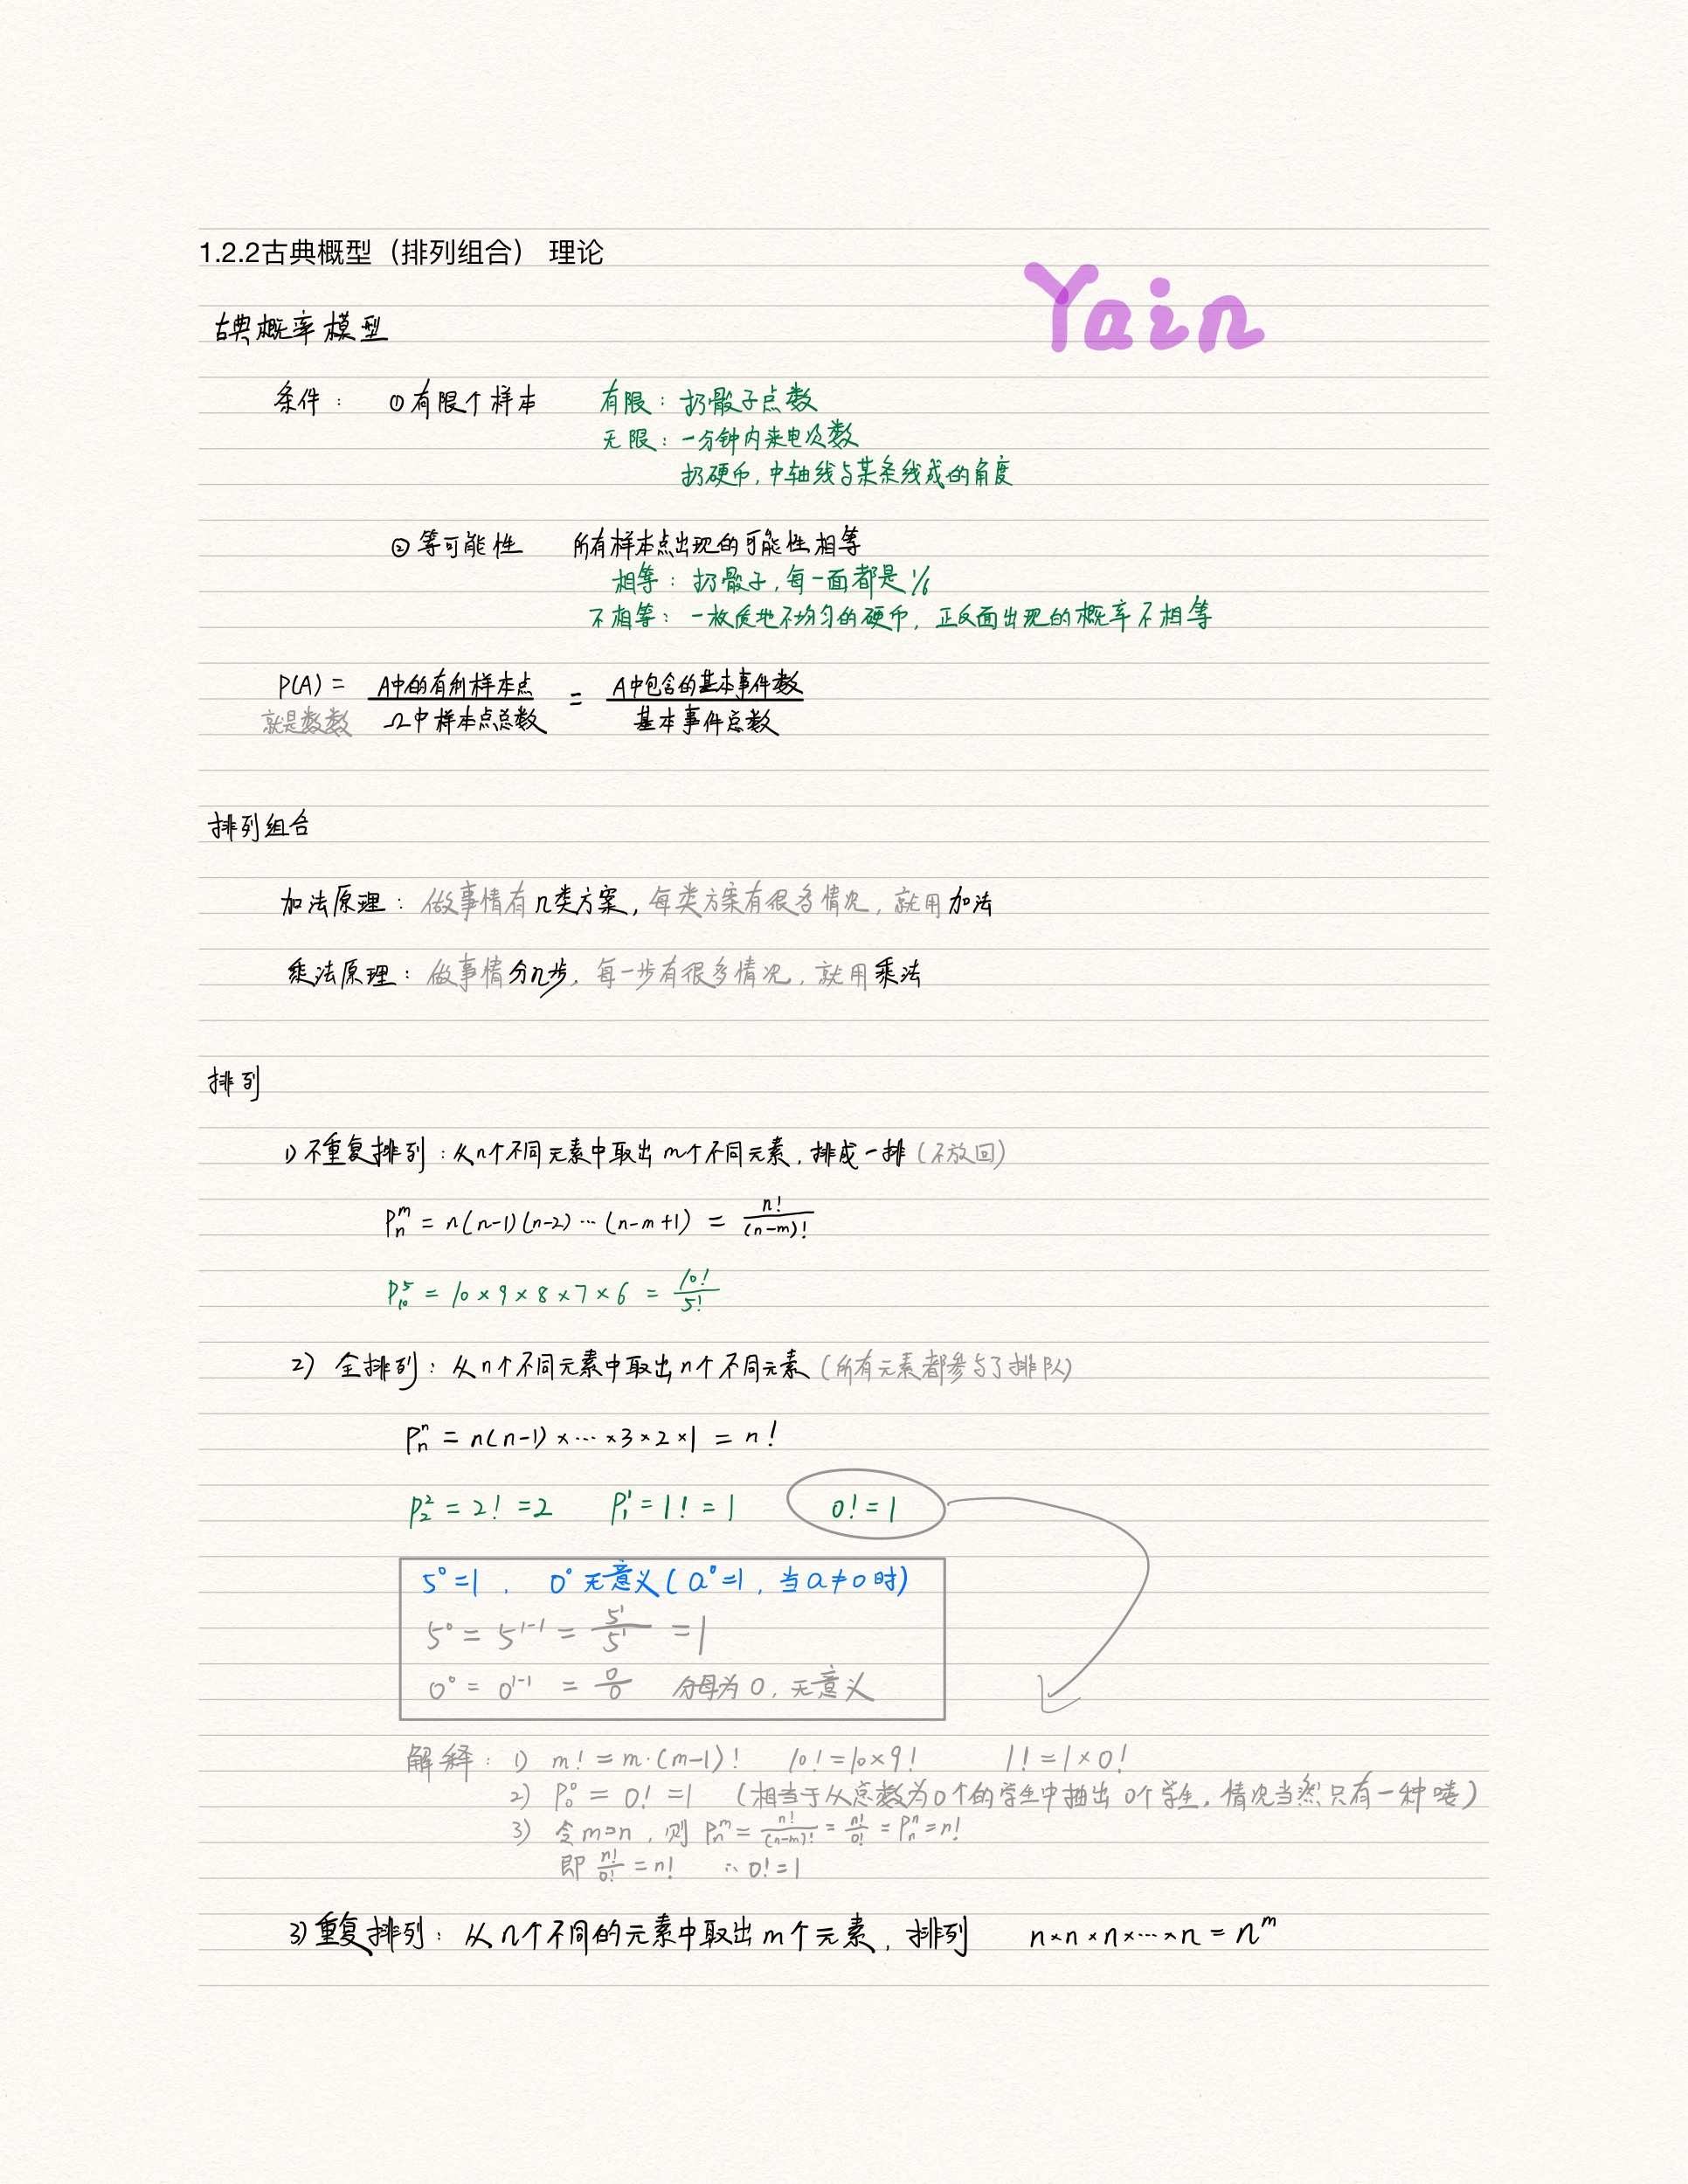 1.2.2古典概型（排列组合） 理论
Yain
古典概率模型
条件： ①有限个样本 有限：扔骰子点数
无限：一分钟内来电次数
扔硬币，中轴线与某条线成的角度
②等可能性 所有样本点出现的可能性相等
相等：扔骰子，每一面都是1/6
不相等：一枚质地不均匀的硬币，正反面出现的概率不相等
P(A) = A中的有利样本点/Ω中样本点总数 = A中包含的基本事件数/基本事件总数
就是数数
排列组合
加法原理：做事情有n类方案，每类方案有很多情况，就用加法
乘法原理：做事情分n步，每一步有很多情况，就用乘法
排列
1) 不重复排列：从n个不同元素中取出m个不同元素，排成一排（不放回）
Pₙᵐ = n(n-1)(n-2)…(n-m+1) = n!/(n-m)!
P₁₀⁵ = 10×9×8×7×6 = 10!/5!
2) 全排列：从n个不同元素中取出n个不同元素（所有元素都参与了排队）
Pₙⁿ = n(n-1)×…×3×2×1 = n!
P₂² = 2! = 2 P₁¹ = 1! = 1 0! = 1
5⁰=1， 0⁰无意义(a⁰=1，当a≠0时)
5⁰ = 5¹⁻¹ = 5¹/5¹ = 1
0⁰ = 0¹⁻¹ = 0/0 分母为0，无意义
解释：1) m! = m·(m-1)! 10! = 10×9! 1! = 1×0!
2) P₀⁰ = 0! = 1 （相当于从总数为0个的学生中抽出0个学生，情况当然只有一种喽）
3) 令m=n，则 Pₙᵐ = n!/(n-m)! = n!/0! = Pₙⁿ = n!
即 n!/0! = n! ∴0!=1
3) 重复排列：从n个不同的元素中取出m个元素，排列 n×n×n×…×n = nᵐ